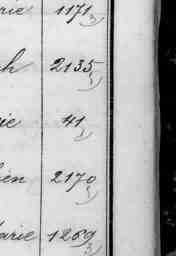 rie 1171 3)
h 2135 3)
ie 41 1)
ien 2170 3)
arie 1269 3)